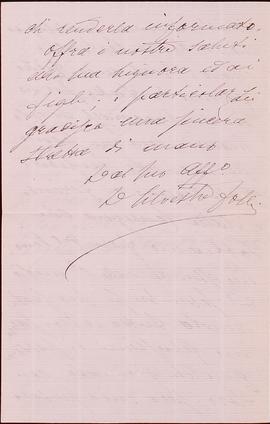 di renderla informato.
Offra i nostri saluti
alla sua Signora ed ai
figli; e particolar
gradisca una sincera
stretta di mano
Dal suo Affo
D Silvestro